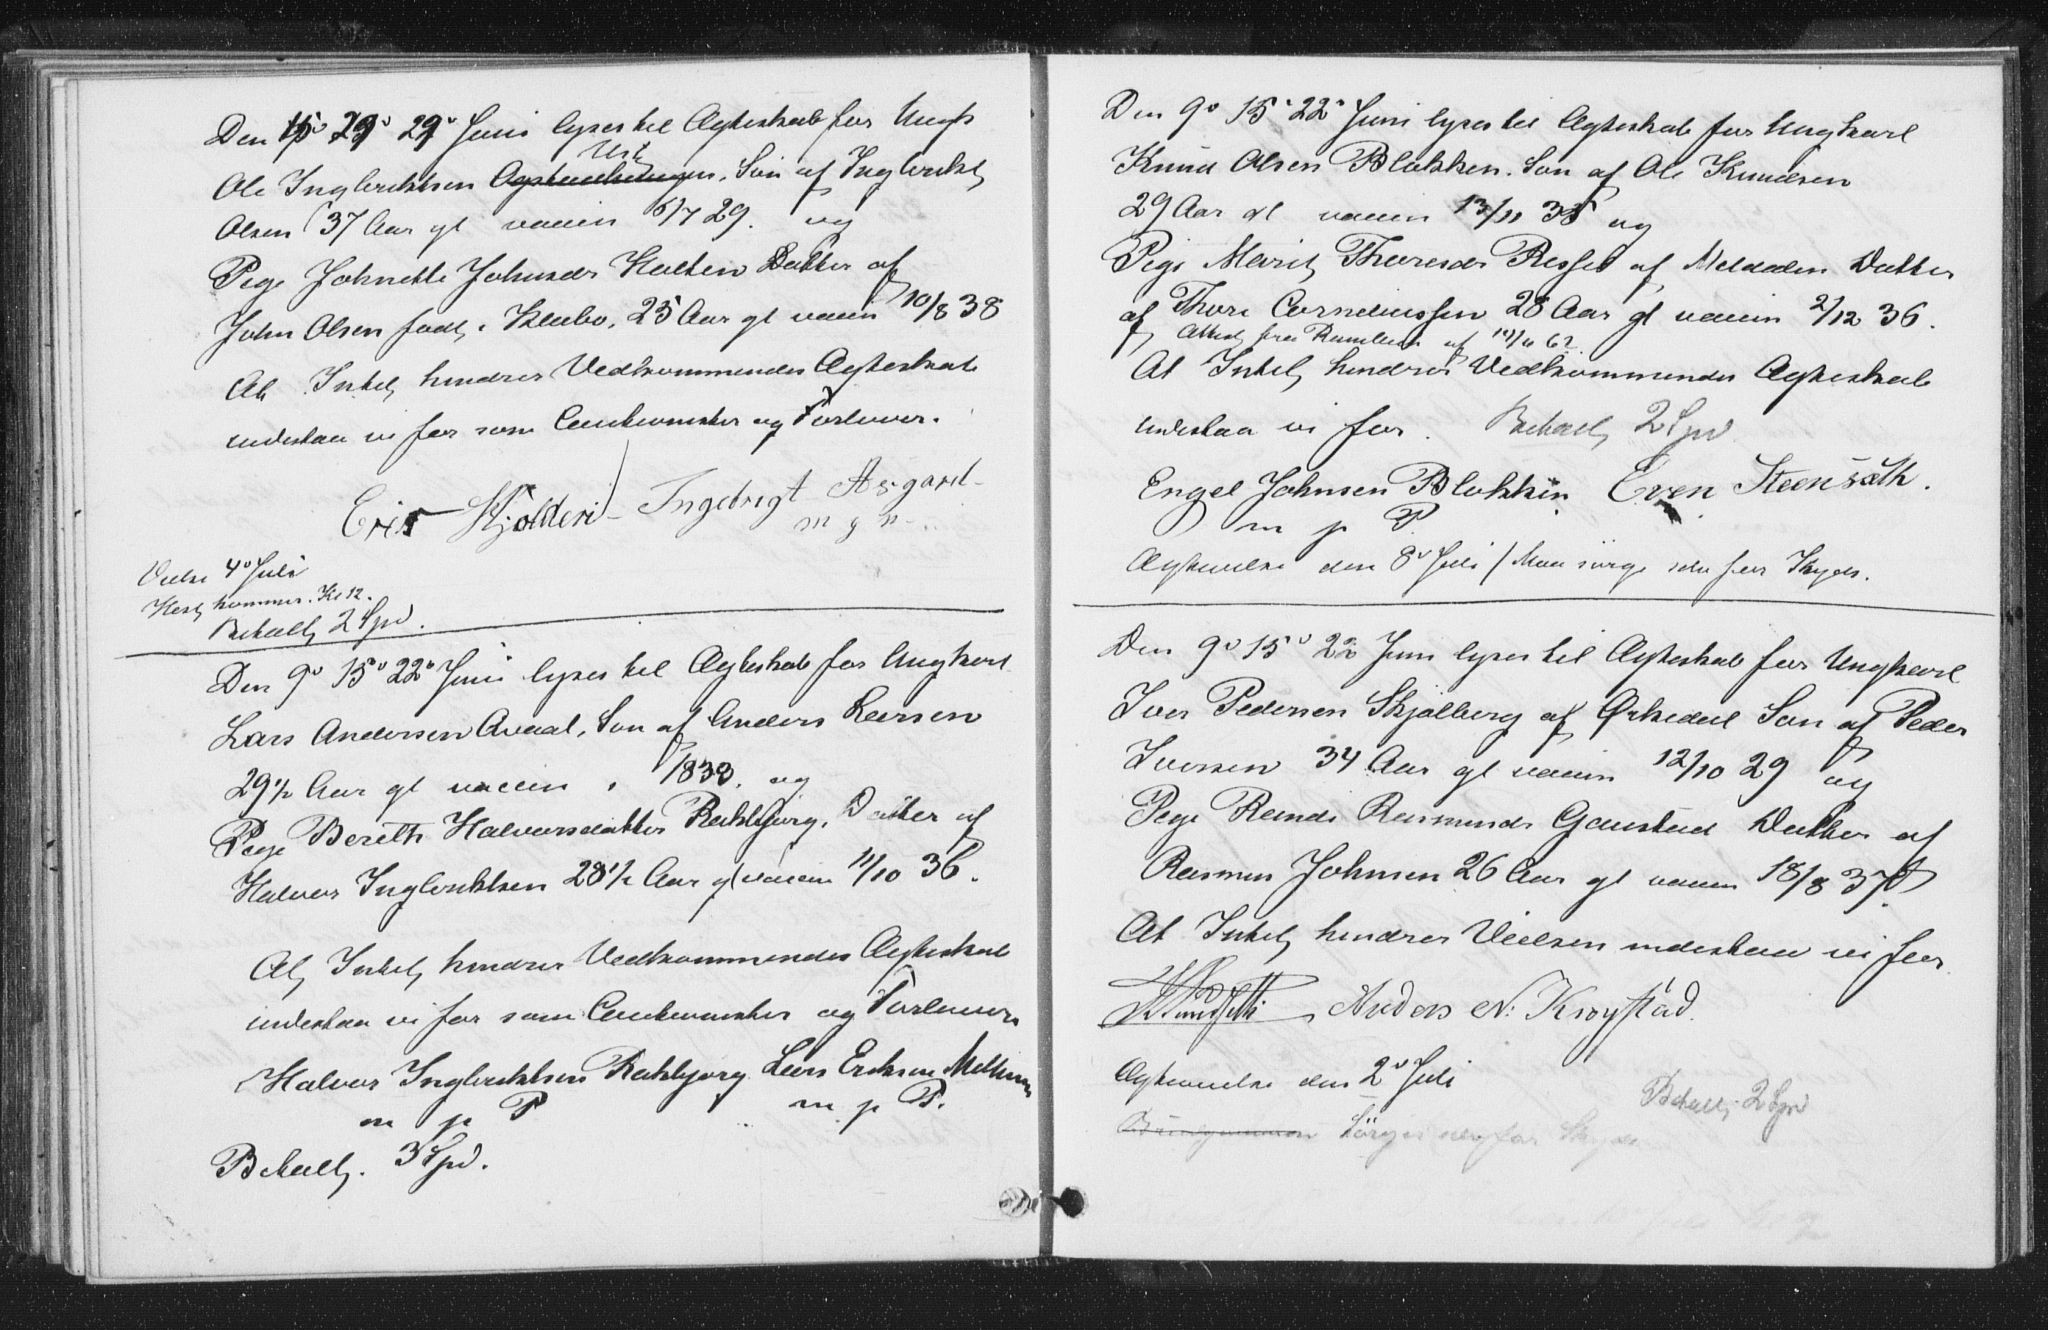 Den 15° 22° 29° Juni lyses til Ægteskab for Ungk
Ole Ingbriktsen Søn af Ingbrikt
Olsen 37 Aar gl vaccin 6/7 29. og
Pige Johnette Johnsdr Halten Datter af
John Olsen født i Klæbo, 25 Aar gl vaccin 10/8 38
At Intet hindrer Vedkommendes Ægteskab
indestaa vi for som Cautionister og Forlover.
Ingebrigt Asgard
Vielse 4° Juli
Hest kommer. Kl 12.
Betalt 2 Spd.
Den 9° 15° 22° Juni lyses til Ægteskab for Ungkarl
Lars Andersen Avaal, Søn af Anders Larsen
29½ Aar gl vaccin i 1833. og
Pige Bereth Halvorsdatter Rakbjørg, Datter af
Halvor Ingbriktsen 28½ Aar gl vaccin 11/10 36.
At Intet hindrer Vedkommendes Ægteskab
indestaa vi for som Cautionister og Forlovere
Halvor Ingbriktsen Rakbjørg Lars Eriksen
m p P m p P.
Betalt. 3 Spd.
Den 9° 15° 22° Juni lyses til Ægteskab for Ungkarl
Knud Olsen Blokken. Søn af Ole Knudsen
29 Aar gl vaccin 13/11 35 og
Pige Marit Thoresdr Resset af Meldalen Datter
af Thore Corneliussen 28 Aar gl vaccin 2/12 36.
Attest fra af 62
At Intet hindrer Vedkommendes Ægteskab
indestaa vi for. Betalt 2 Spd
Engel Johnsen Blokkin Even Steensæth.
m p P.
Ægtevielse den 8° Juli / Man sørge selv for Skyds.
Den 9° 15° 22 Juni lyses til Ægteskab for Ungkarl
Iver Pedersen Skjølberg af Ørkedal Søn af Peder
Iversen 34 Aar gl vaccin 12/10 29 og
Pige Randi Rasmusdr Gaustad Datter af
Rasmus Johnsen 26 Aar gl vaccin 18/8 37.
At Intet hindrer Vielsen indestaa vi for
Anders N: Krogstad.
Ægtevielse den 2° Juli
Betalt 2 Spd
Brudgommen sørger selv for Skyds